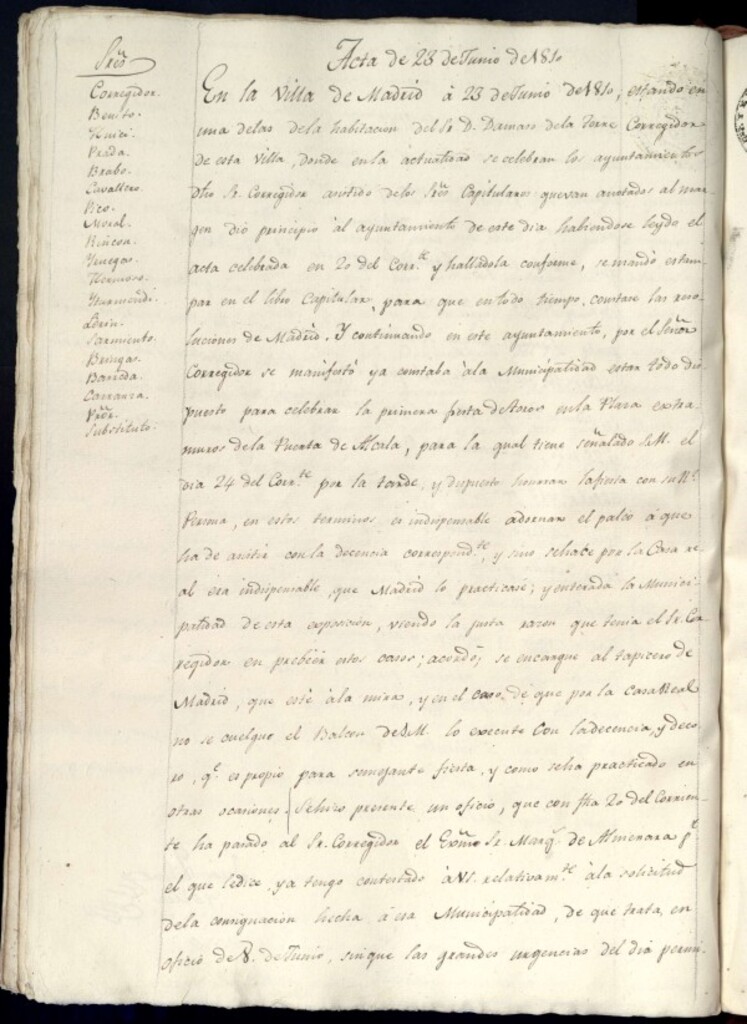 Acta de 23 de Junio de 1810
Sres
Corregidor.
Benito.
Huici.
Prada.
Brabo.
Cavallero.
Pico.
Moral.
Rincon.
Venegas.
Hermoso.
Yturmendi.
Sarmiento.
Bringas.
Barreda.
Carranza.
Pror.
Substituto.
En la Villa de Madrid à 23 de Junio de 1810, estando en
una delas dela habitacion del Sr. D. Damaso dela Torre Corregidor
de esta Villa, donde en la actualidad se celebran los ayuntamientos
dho Sr. Corregidor asistido delos Sres Capitulares quevan anotados al mar-
gen dio principio àl ayuntamiento de este dia habiendose leydo el
acta celebrada en 20 del Corrte. y hallādola conforme, se mandó estam-
par en el libro Capitular, para que en todo tiempo, constase las reso-
luciones de Madrid. Y continuando en este ayuntamiento, por el Señor
Corregidor se manifestó ya constaba àla Municipalidad estar todo dis-
puesto para celebrar la primera fiesta de toros en la Plaza extra-
muros dela Puerta de Alcala, para la qual tiene señalado S.M. el
dia 24 del Corrte. por la tarde, y dispuesto honrrar la fiesta con su Rl.
Persona, en estos terminos es indispensable adornar el palco à que
ha de asistir con la decencia correspondte., y sino sehace por la Casa re-
al era indispensable, que Madrid lo practicase; y enterada la Munici-
palidad de esta exposicion, viendo la justa razon que tenia el Sr. Co-
rregidor en preveer estos casos; acordó; se encargue al tapicero de
Madrid, que esté àla mira, y en el caso de que por la Casa Real
no se cuelgue el Balcon de S.M. lo execute con la decencia, y deco-
ro, qe. es propio para semejante fiesta, y como seha practicado en
otras ocasiones. Sehizo presente un oficio, que con fha 20 del Corrien-
te ha pasado al Sr. Corregidor el Exmo Sr. Marqs. de Almenara
el que ledice, ya tengo contestado àVS. relativamte. àla solicitud
dela consignacion hecha à esa Municipalidad, de que trata, en
oficio de 8. de Junio, sinque las grandes urgencias del dia permi-